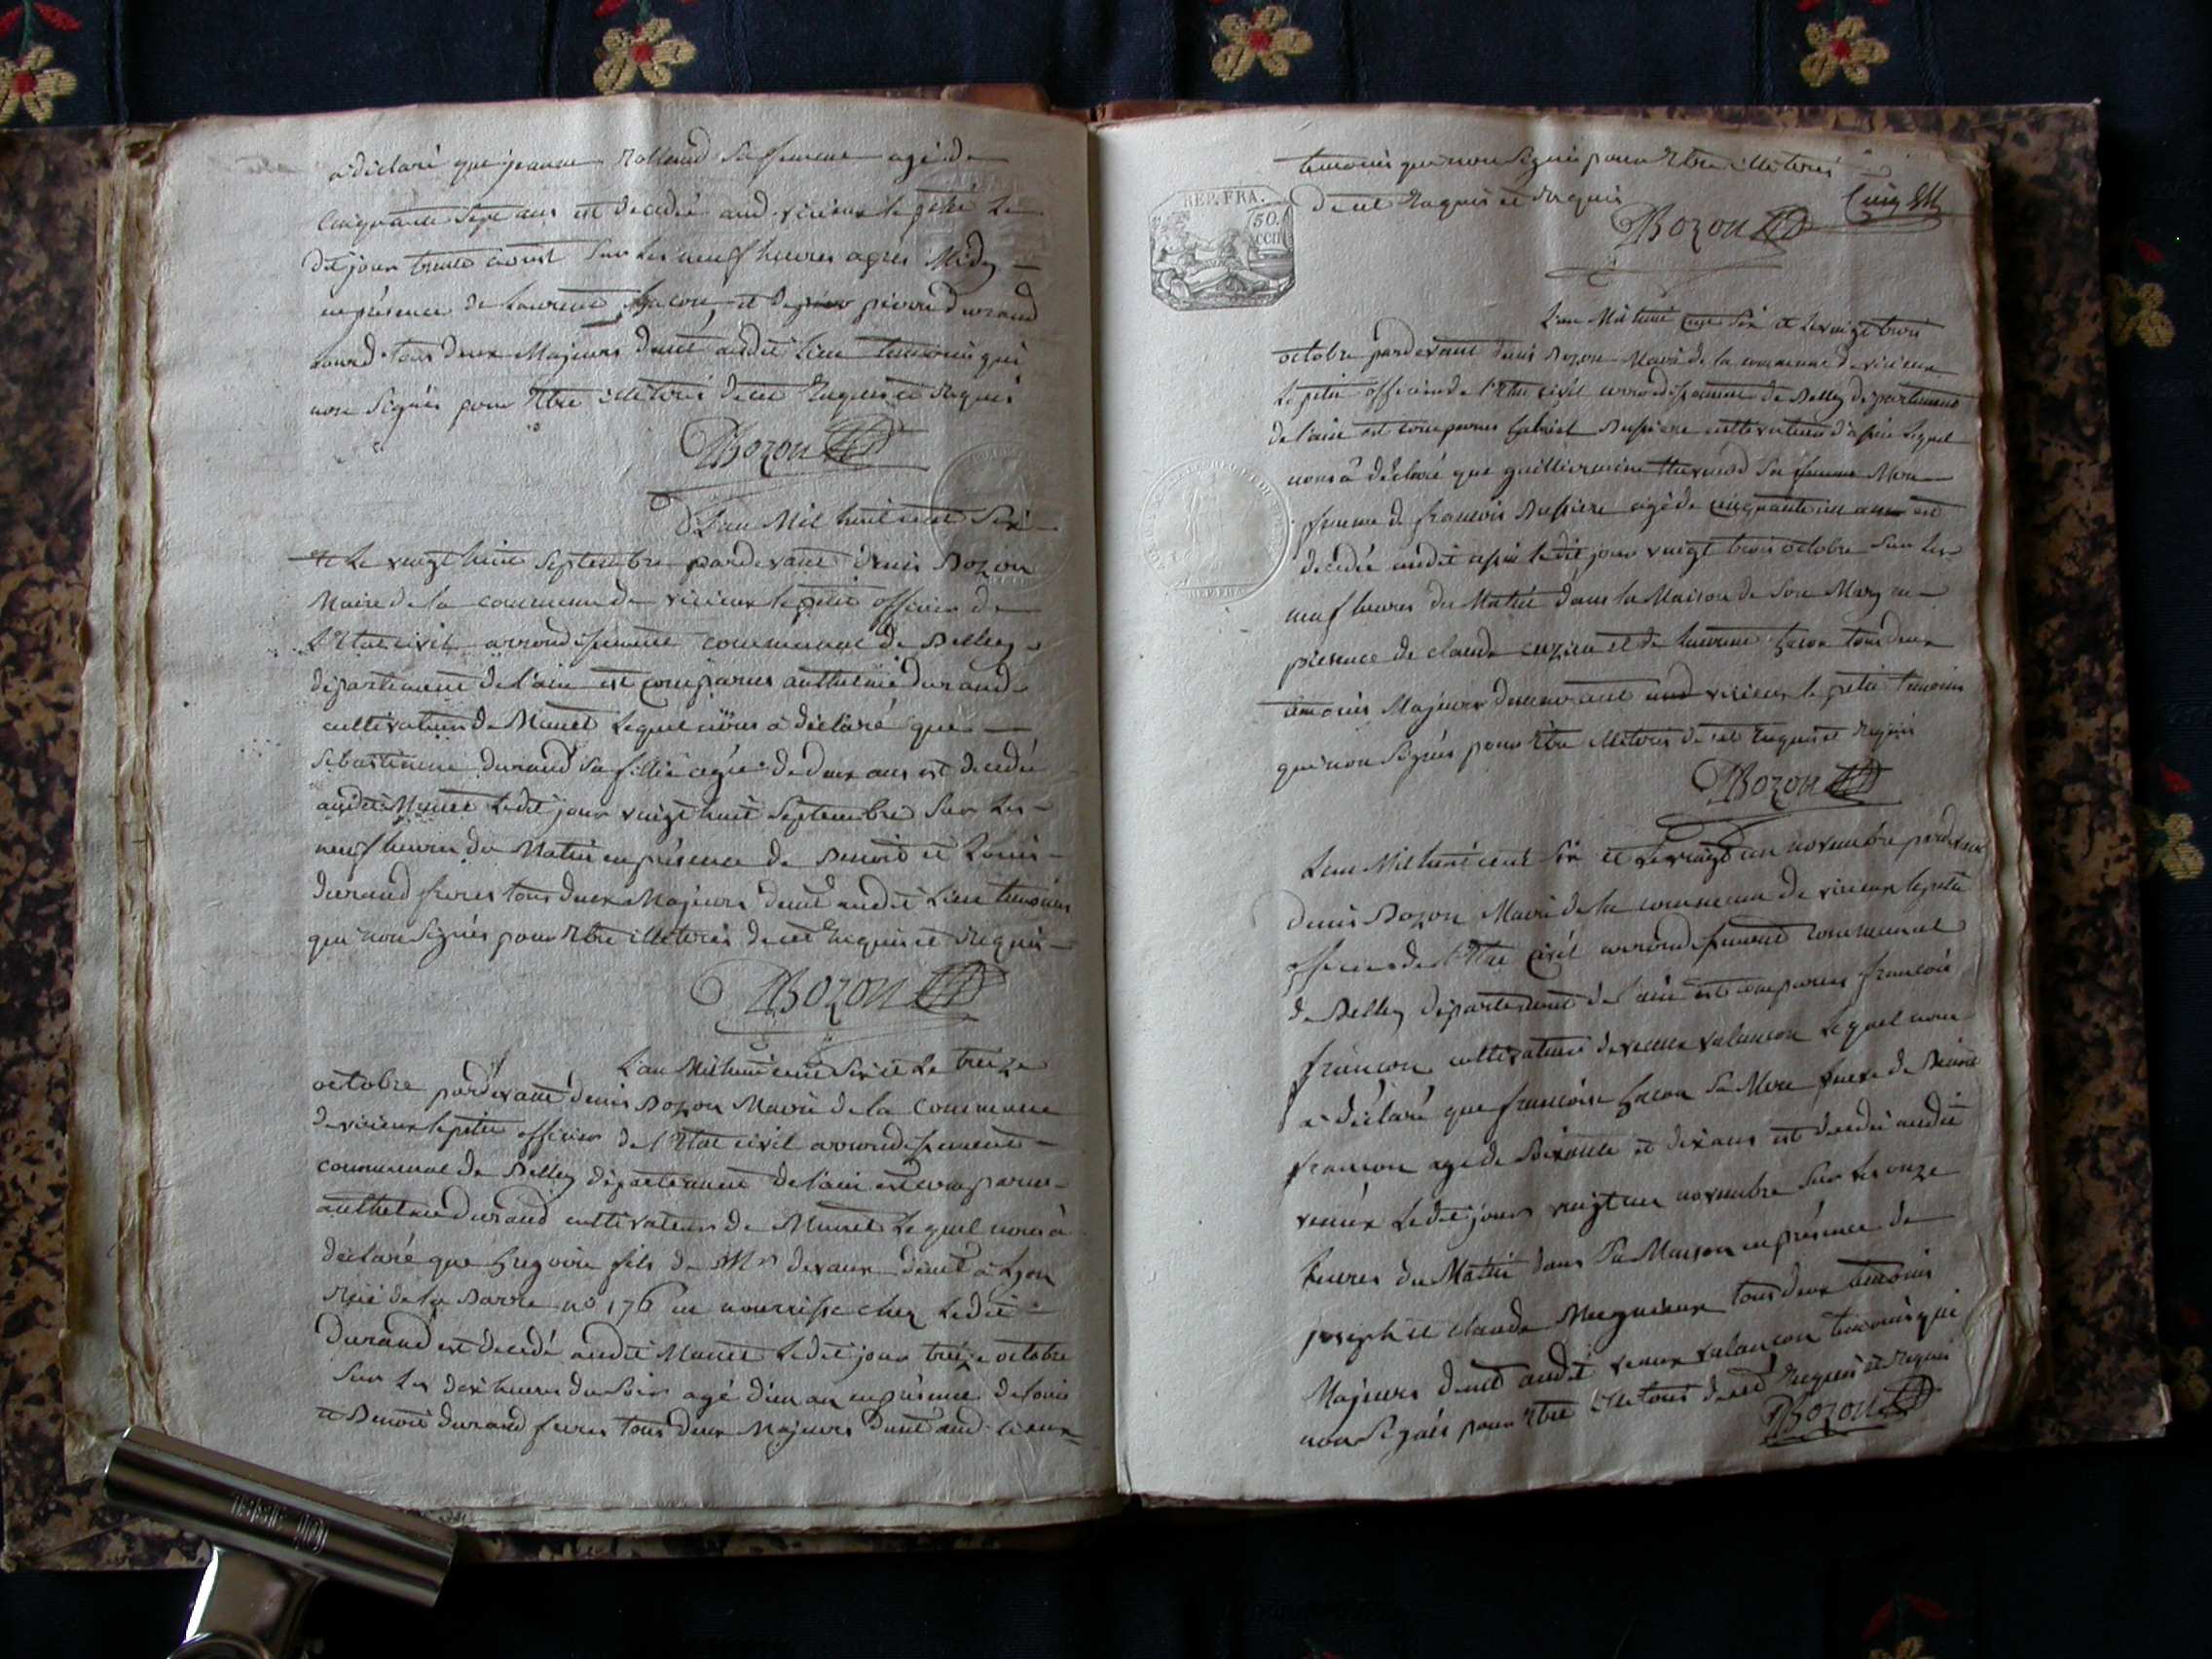 a déclaré que jeanne Rolland sa femme agé de
Cinquante Sept ans est decedée aud. virieux le petit le
dit jour trente aoust sur les neuf heures apres Midy
en présence de Laurent et de pierre durand
tous deux Majeurs demt audit Lieu temoins qui
non Signés pour Etre illeterés de ce Enquis et Requis
DBozon
L'an Mil huit cent Six
et Le vingt huit Septembre pardevant denis Bozon
Maire de la commune de virieux le petit officier de
L'Etat civil arrondissement communal de Belley
département de l'ain est comparus anthelme durand
cultivateur de Munet Lequel nous a déclaré que
Sebastienne durand sa fillie agée de deux ans est decedée
audit Munet Ledit jour vingt huit Septembre Sur Les
neuf heures du Matin en présence de Benoit et Louis
durand freres tous deux Majeurs demt audit Lieu temoins
qui non Signés pour Etre illeterés de cet Enquis et Requis
DBozon
L'an Mil huit cent Six et Le treize
octobre pardevant denis Bozon Maire de la Commune
de virieux le petit officier de l'Etat civil arrondissement
communal de Belley département de l'ain est comparus
anthelme durand cultivateur de Munet Lequel nous a
déclaré que Gregoire fils de Mr devaux demt a Lyon
Rue de la Barre no 176 en nourrisse chez Ledit
Durand est decedé audit Munet Ledit jour treize octobre
Sur Les dix heures du Soir agé d'un an en présence de louis
et Benoit durand freres tous deux Majeurs demt aud. Lieux
temoins qui non Signés pour Etre illeterés
de cet Enquis et Requis
DBozon
REP. FRA.
50.
cent
L'an Mil huit cent Six et Le vingt trois
octobre pardevant denis Bozon Maire de la commune de virieux
Le petit officier de l'Etat civil arrondissement de Belley département
de l'ain est comparus Gabriel Bussiere cultivateur d'assin Lequel
nous a déclaré que guilliermine sa femme Mere
femme de francois Bussiere agé de cinquante un ans est
decedée audit assin Ledit jour vingt trois octobre Sur Les
neuf heures du Matin dans la Maison de Son Mary en
présence de claude cuzin et de Laurent tous deux
temoins Majeurs demeurant aud virieux le petit temoins
qui non Signés pour Etre illeterés de cet Enquis et Requis
DBozon
L'an Mil huit cent Six et Le vingt un novembre pardevant
denis Bozon Maire de la commune de virieux le petit
officier de l'Etat civil arrondissement communal
de Belley département de l'ain est comparus francois
françon cultivateur de vaux valancon Lequel nous
a déclaré que francoise sa Mere veuve de Benoit
françon agé de Soixante et dix ans est decedée audit
vaux Ledit jour vingt un novembre Sur Les onze
heures du Matin dans Sa Maison en présence de
joseph et claude tous deux temoins
Majeurs demt audit vaux valancon temoins qui
non Signés pour Etre illeterés de cet Enquis et Requis
DBozon